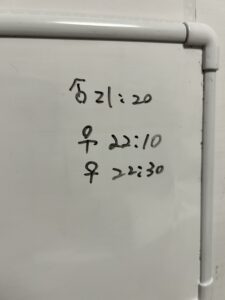 ♂ 21:20
♀ 22:10
♀ 22:30